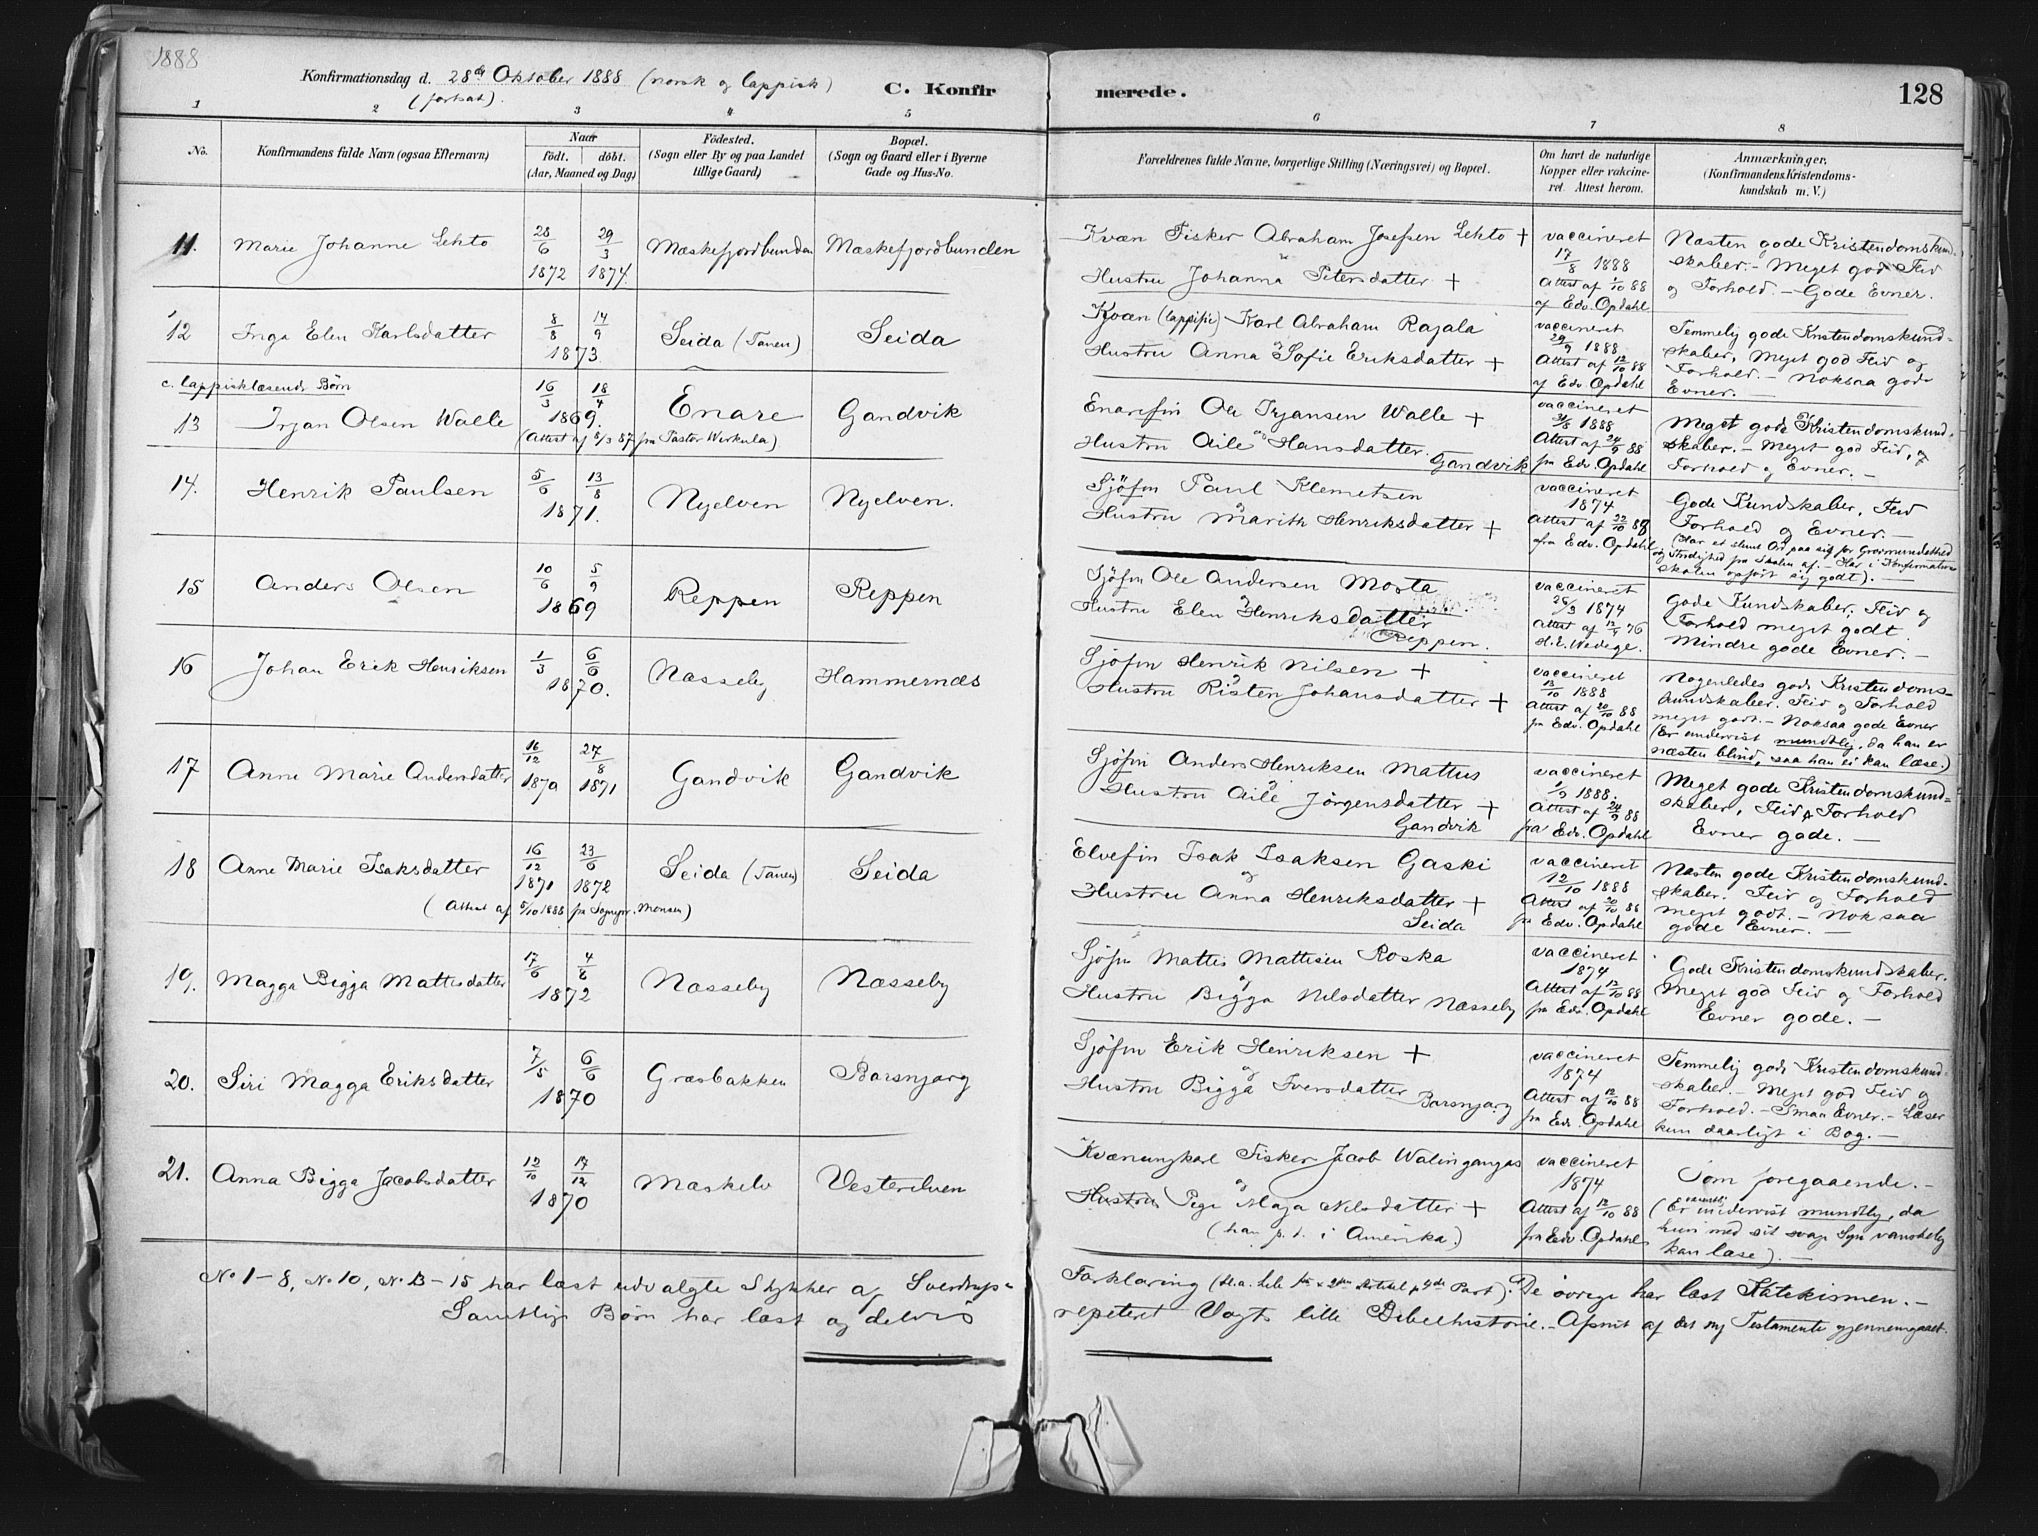 1888
Konfirmationsdag d. 28de Oktober 1888 (norsk og lappisk)
(fortsat).
C. Konfirmerede.
128
1 2 3 4 5 6 7 8
No.
Konfirmandens fulde Navn (ogsaa Efternavn)
Naar
födt. döbt.
(Aar, Maaned og Dag)
Födested.
(Sogn eller By og paa Landet
tillige Gaard)
Bopæl.
(Sogn og Gaard eller i Byerne
Gade og Hus-No.
Forældrenes fulde Navne, borgerlige Stilling (Næringsvei) og Bopæl.
Om havt de naturlige
Kopper eller vakcine-
ret. Attest herom.
Anmærkninger,
(Konfirmandens Kristendoms-
kundskab m. V.)
11. Marie Johanne Lehto 28/6 1872 29/3 1874 Mæskefjordbunden Mæskefjordbunden
Kvæn Fisker Abraham Josefsen Lehto +
og
Hustru Johanna Petersdatter +
vaccineret
17/8 1888
Attest af 1/10 88
af Edv. Opdahl
Næsten gode Kristendomskund-
skaber. - Meget god Flid
og Forhold. - Gode Evner.
12 Inga Elen Karlsdatter 8/8 14/9 1873 Seida (Tanen) Seida
Kvæn (lappisk) Karl Abraham Rajala
og
Hustru Anna Sofie Eriksdatter +
vaccineret
29/9 1888
Attest af 12/10 88
af Edv. Opdahl
Temmelig gode Kristendomskund-
skaber, Meget god Flid og
Forhold. - Noksaa gode
Evner. -
c. lappisklæsende Børn
13 Irjan Olsen Walle 16/3 18/4 1869. Enare Gandvik
(Attest af 8/3 87 fra Pastor Wirkula)
Enarefin Ole Irjansen Walle +
og
Hustru Aile Hansdatter. Gandvik
vaccineret
31/8 1888
Attest af 24/9 88
fra Edv. Opdahl
Meget gode Kristendomskund-
skaber. - Meget god Flid, og
Forhold og Evner. -
14. Henrik Paulsen 5/6 13/8 1871. Nyelven Nyelven.
Sjöfin Paul Klemetsen
og
Hustru Marith Henriksdatter +
vaccineret
1874
Attest af 22/10 88
fra Edv. Opdahl
Gode Kundskaber, Flid
Forhold og Evner. -
(Har et slemt Ord paa sig for Grovmundethed
og Stridighed fra Skolen af. - Har i Konfirmations
skolen opført sig godt). -
15 Anders Olsen 10/6 5/9 1869 Reppen Reppen
Sjöfin Ole Andersen Mosta
og
Hustru Elen Henriksdatter
Reppen.
vaccineret
26/3 1874
Attest af 12/4 76
H. E. Wedege.
Gode Kundskaber, Flid og
Forhold meget godt.
Mindre gode Evner. -
16 Johan Erik Henriksen 1/3 6/6 1870. Næsseby Hammernæs
Sjöfin Henrik Nilsen +
og
Hustru Risten Johansdatter +
vaccineret
13/10 1888
Attest af 20/10 88
fra Edv. Opdahl
Nogenledes gode Kristendoms-
kundskaber. Flid og Forhold
meget godt. - Noksaa gode Evner
(Er undervist mundtlig, da han er
næsten blind, saa han ei kan læse.)
17 Anne Marie Andersdatter 16/12 1870 27/8 1871 Gandvik Gandvik
Sjöfin Anders Henriksen Mattus
og
Hustru Aile Jörgensdatter +
Gandvik
vaccineret
1/9 1888.
Attest af 24/9 88
fra Edv. Opdahl
Meget gode Kristendomskund-
skaber, Flid & Forhold
Evner gode. -
18 Anne Marie Isaksdatter 16/12 1871 23/6 1872 Seida (Tanen) Seida
(Attest af 5/10 1888 fra Sognepr. Monsen)
Elvefin Isak Isaksen Gaski
og
Hustru Anna Henriksdatter +
Seida
vaccineret
12/10 1888
Attest af 20/10 88
fra Edv. Opdahl
Næsten gode Kristendomskund-
skaber. Flid og Forhold
meget godt. - Noksaa
gode Evner. -
19. Magga Bigga Mattisdatter 17/6 4/8 1872 Næsseby Næsseby
Sjöfin Mattis Mattisen Roska
og
Hustru Bigga Nilsdatter Næsseby
vaccineret
1874
Attest af 12/10 88
fra Edv. Opdahl
Gode Kristendomskundskaber.
Meget god Flid og Forhold
Evner gode. -
20. Siri Magga Eriksdatter 7/5 6/6 1870 Græsbakken Barsnjarg
Sjöfin Erik Henriksen +
og
Hustru Bigga Iversdatter Barsnjarg
vaccineret
1874
Attest af 12/10 88
fra Edv. Opdahl
Temmelig gode Kristendomskund-
skaber. - Meget god Flid og
Forhold. - Smaa Evner. - Læser
kun daarligt i Bog. -
21. Anna Bigga Jacobsdatter 12/10 17/12 1870 Mæskelv Vesterelven
Kvænungkarl Fisker Jacob
og
Hustru Pige Maja Nilsdatter +
(han p. t. i Amerika.)
vaccineret
1874
Attest af 12/10 88
fra Edv. Opdahl
Som foregaaende. -
(Er undervist mundtlig, da
hun med sit svage Syn vanskelig
kan læse). -
No 1-8, No 10, No 13-15 har læst udvalgte Stykker af Sverdrups Forklaring De øvrige har læst Katekismen. -
Samtlige Børn har læst og delvis repeteret Vogts lille Bibelhistorie. - Afsnit af det ny Testamente gjennemgaaet.